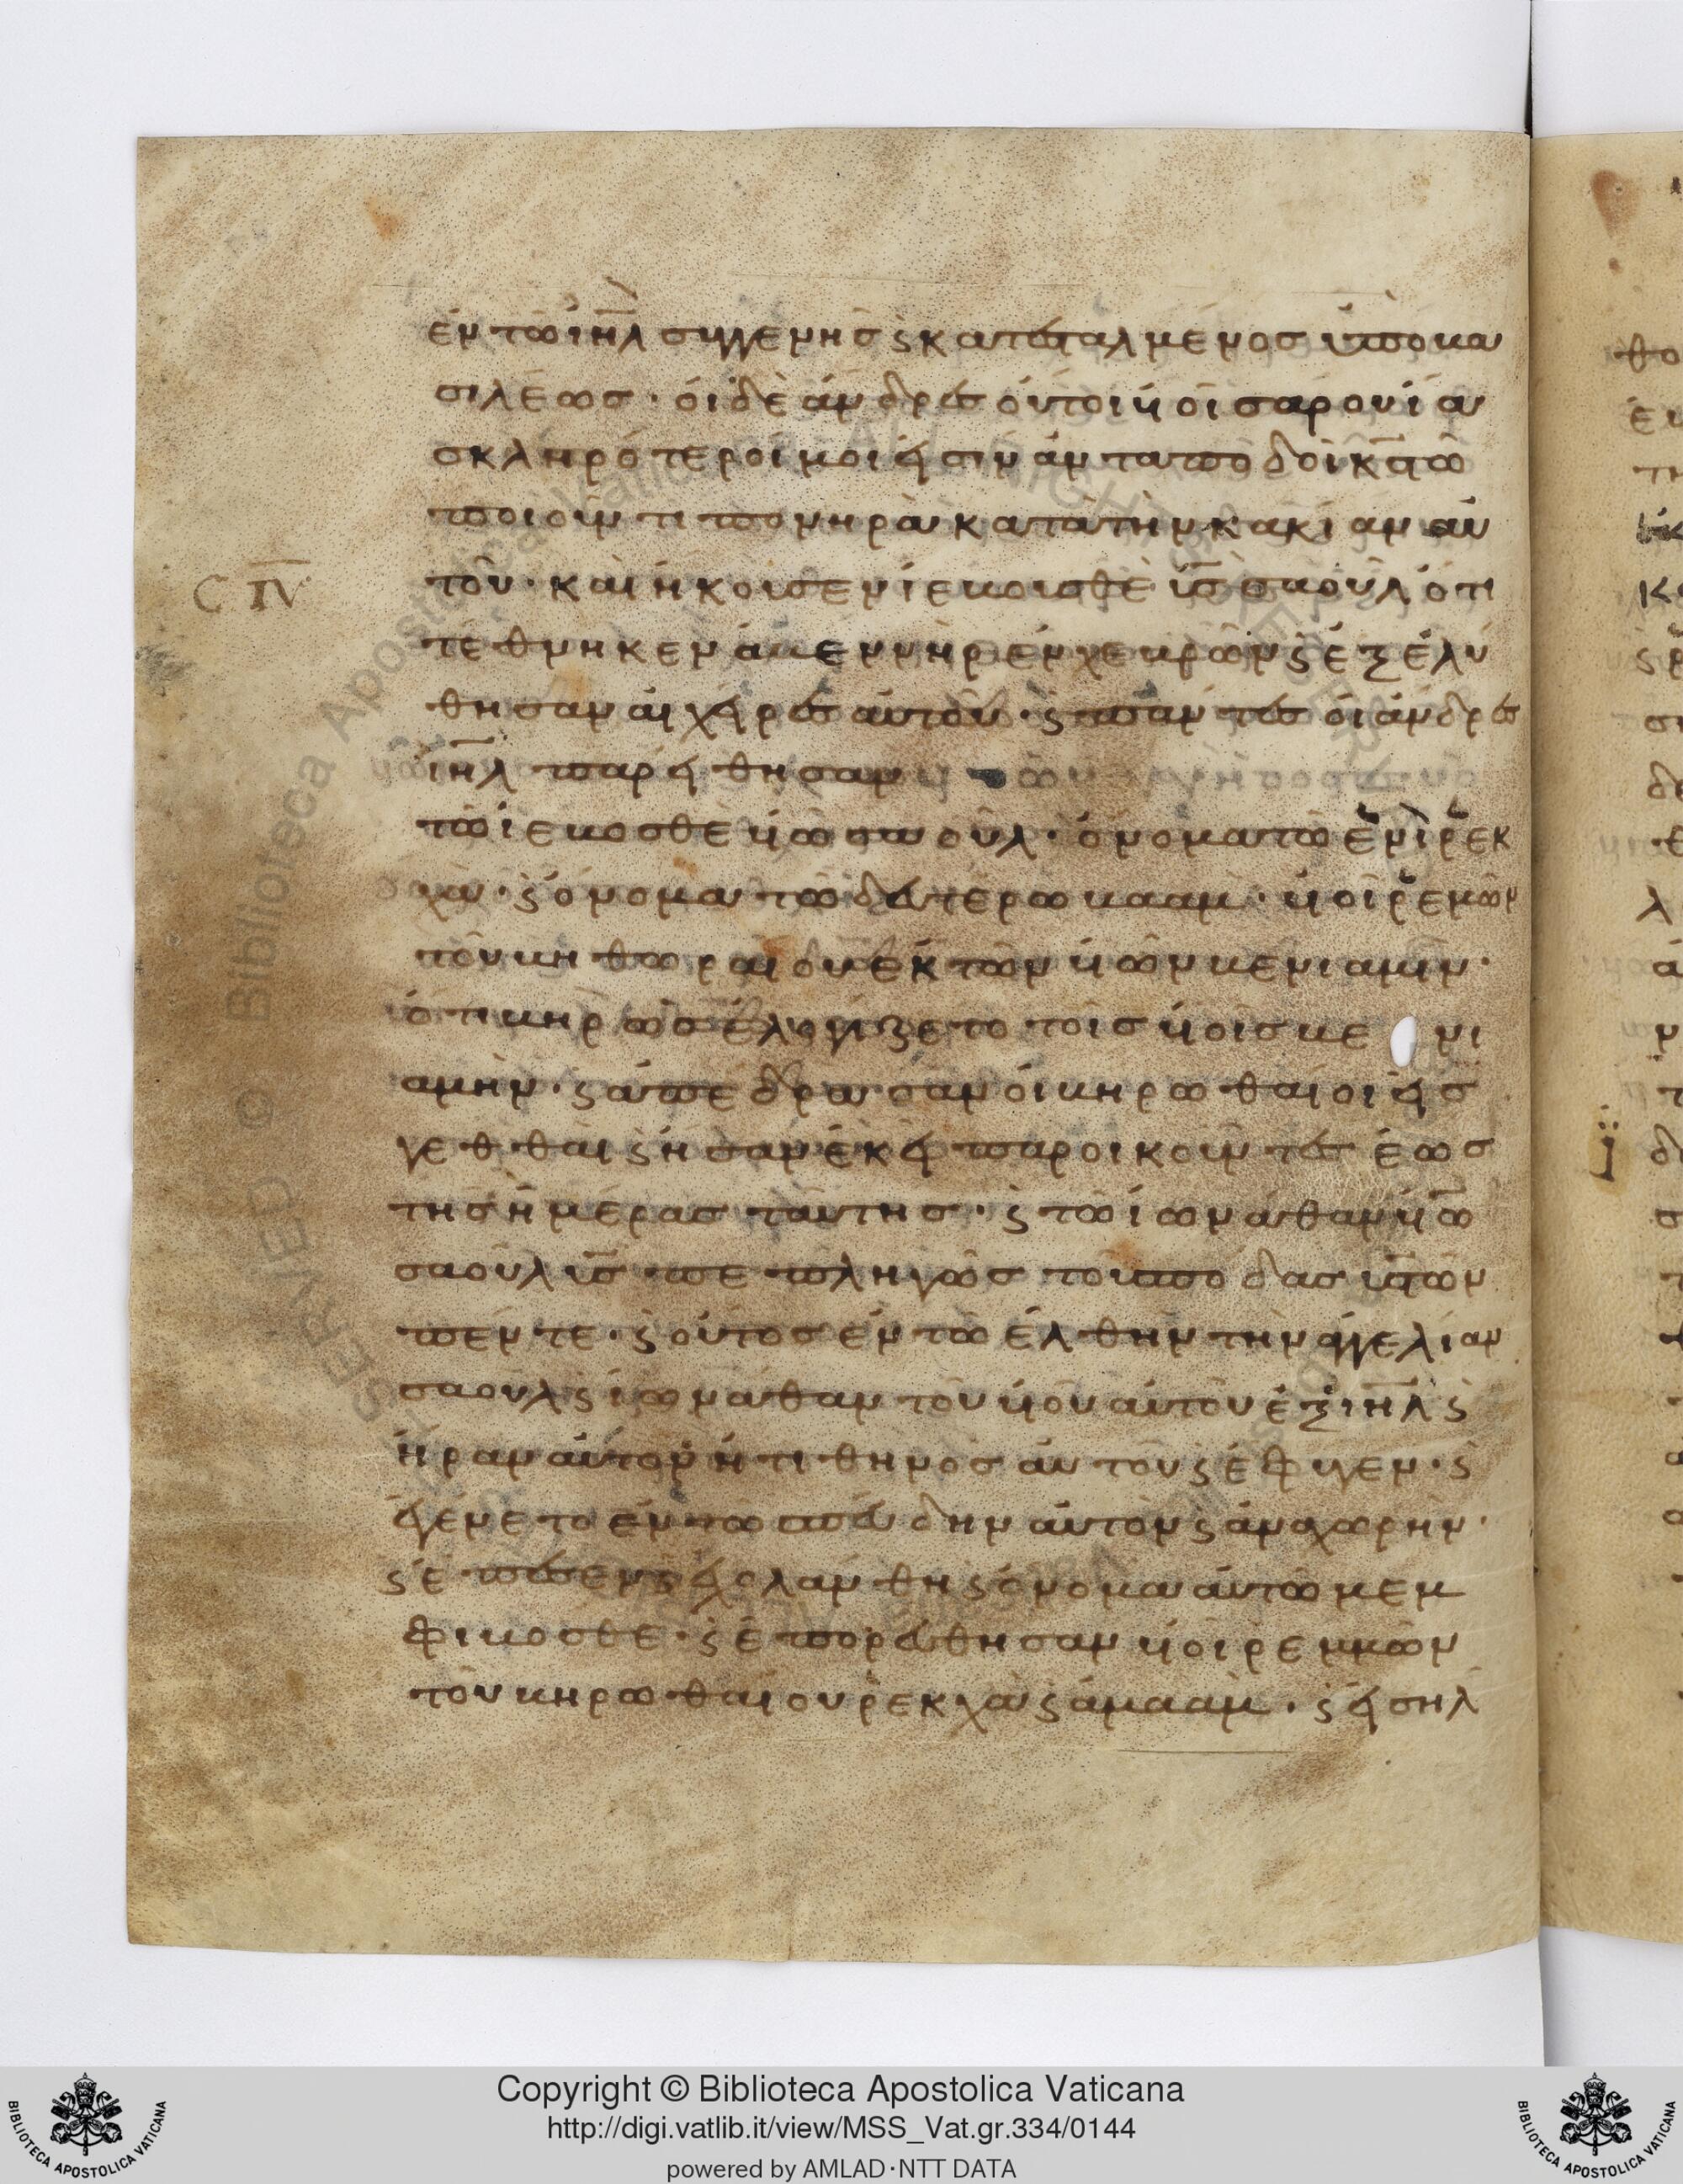 ἐν τῶ ἰηλ συγγενὴς ϛ κατεσταλμένος ὑπὸ βα
σιλέως · οἱ δὲ ἄνδρες οὗτοι υἱοὶ σαρουία
σκληρότεροί μοι εἰσὶν ἀνταποδοῖ κς τῶ
ποιοῦντι πονηρὰ κατὰ τὴν κακίαν αὐ
τοῦ · καὶ ἤκουσεν ἰεβουσθὲ υς σαοὺλ ὅτι
τέθνηκεν ἀβεννὴρ ἐν χεβρὼν ϛ ἐξελύ
θησαν αἱ χεῖρες αὐτοῦ · ϛ πάντες οἱ ἄνδρες
ἰηλ παρείθησαν
τῶ ἰεβοσθὲ υἱῶ σαούλ · ὄνομα τῶ ἑνὶ ῥεκ
χὰ · ϛ ὄνομα τῶ δευτέρω βαὰμ · υἱοὶ ῥεμὼν
τοῦ βηθωραίου ἐκ τῶν υἱῶν βενιαμίν ·
ὅτι βηρὼς ἐλογίζετο τοῖς υἱοῖς βε νι
αμὴν · ϛ ἀπέδρασαν οἱ βηρωθαῖοι εἰς
γεθθαὶ ϛ ἦσαν ἐκεῖ παροικοῦντες ἕως
τῆς ἡμέρας ταύτης · ϛ τῶ ἰωνάθαν υἱῶ
σαοὺλ υς πεπληγὼς τοὺς πόδας υς ἐτῶν
πέντε · ϛ οὗτος ἐν τῶ ἐλθῆν τὴν ἀγγελίαν
σαοὺλ ϛ ἰωνάθαν τοῦ υἱοῦ αὐτοῦ ἐξ ιηλ ϛ
ἦραν αὐτὸν ἡ τιθηνὸς αὐτοῦ ϛ ἔφυγεν · ϛ
ἐγένετο ἐν τῶ σπεύδην αὐτὸν ϛ ἀναχωρῆν ·
ϛ ἔπεσεν ϛ ἐχολάνθη ϛ ὄνομα αὐτῶ μεμ
φιβοσθέ · ϛ ἐπορεύθησαν υἱοὶ ῥεμμὼν
τοῦ βηρωθαίου ῥεκχὰ ϛ ἀμαὰμ · ϛ εἰσῆλ
C IV
Copyright © Biblioteca Apostolica Vaticana
http://digi.vatlib.it/view/MSS_Vat.gr.334/0144
powered by AMLAD·NTT DATA
BIBLIOTECA APOSTOLICA VATICANA
BIBLIOTECA APOSTOLICA VATICANA